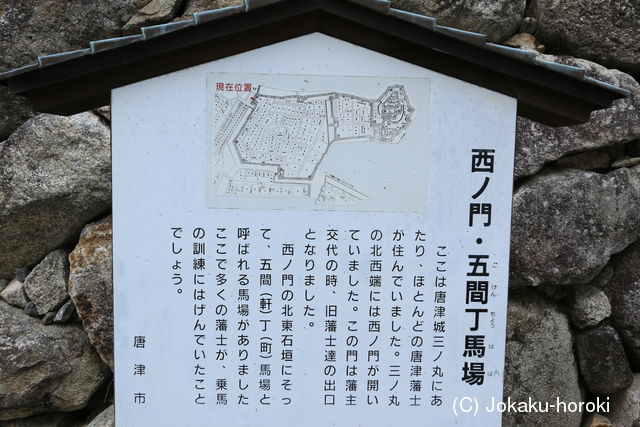 現在位置
西ノ門・五間丁馬場
ごけんちょうばば
ここは唐津城三ノ丸にあ
たり、ほとんどの唐津藩士
が住んでいました。三ノ丸
の北西端には西ノ門が開い
ていました。この門は藩主
交代の時、旧藩士達の出口
となりました。
西ノ門の北東石垣にそっ
て、五間（軒）丁（町）馬場と
呼ばれる馬場がありました
ここで多くの藩士が、乗馬
の訓練にはげんでいたこと
でしょう。
唐津市
(C) Jokaku-horoki